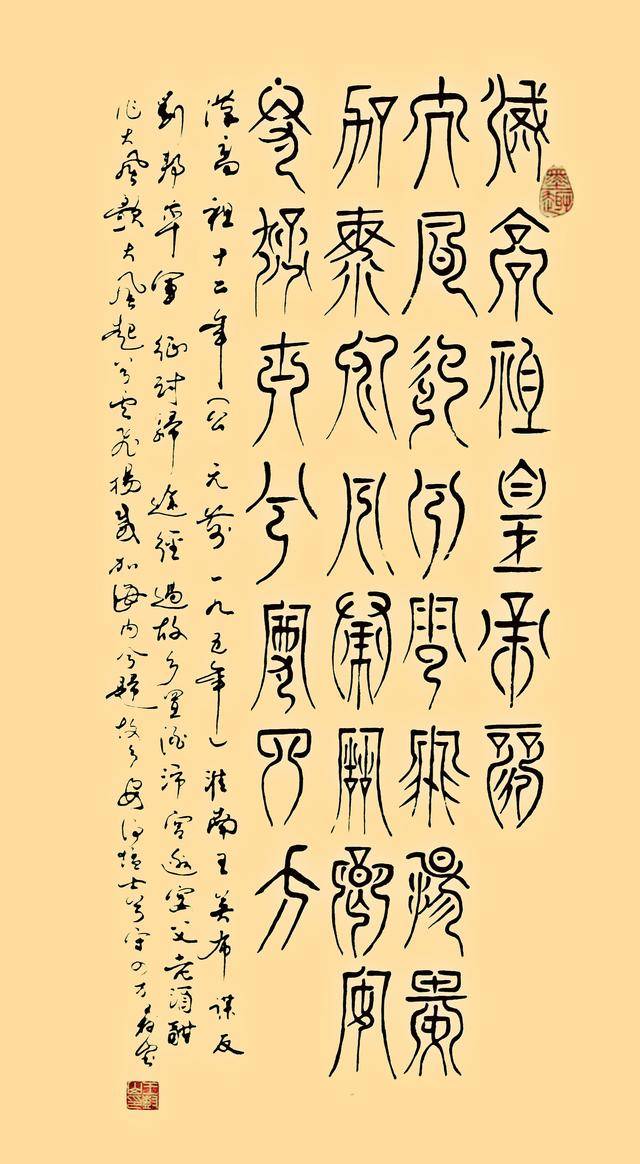 高祖皇帝
大風起兮雲飛揚威
加海内兮歸故鄉安
得猛士兮守四方
漢高祖十二年（公元前一九五年）淮南王英布謀反
劉邦率軍征討歸途經過故乡置酒沛宫邀宴父老酒酣
作大風歌大風起兮雲飛揚威加海内兮歸故乡安得猛士兮守四方